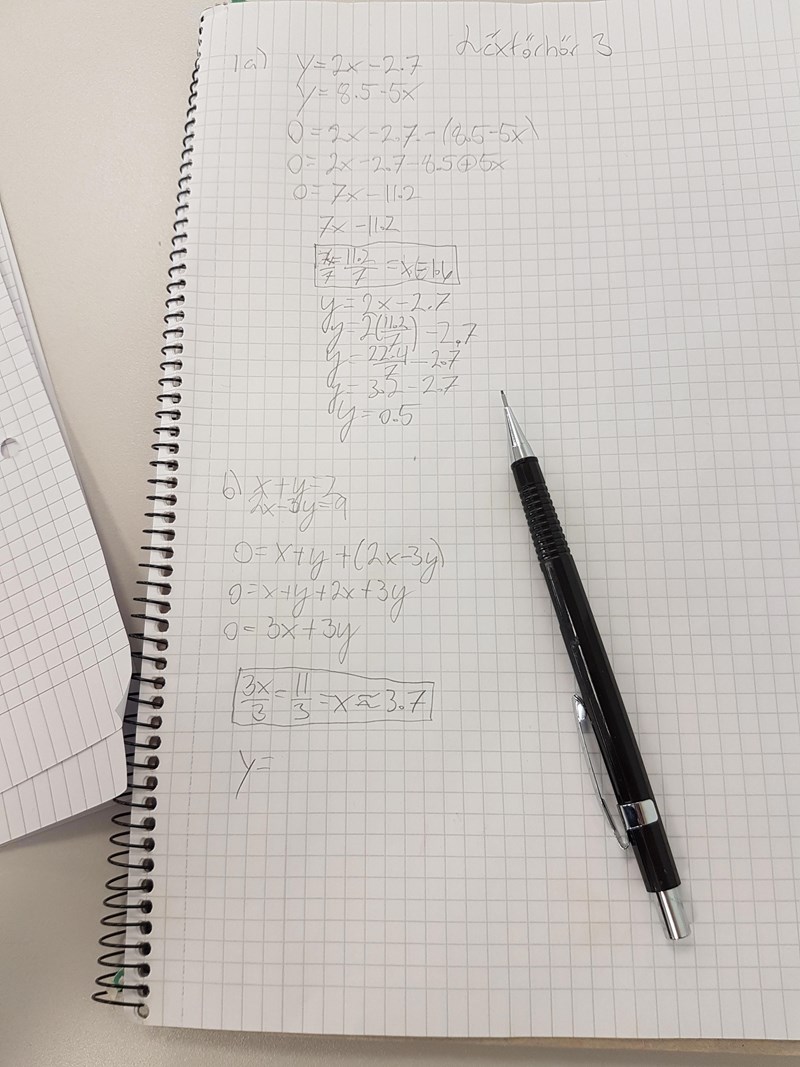 1a)
y=2x-2.7
y=8.5-5x
0=2x-2.7-(8.5-5x)
0=2x-2.7-8.5+5x
0=7x-11.2
7x-11.2
7x/7=11.2/7=x=1.6
y=2x-2.7
y=2(11.2/7)-2.7
y=22.4/7-2.7
y=3.2-2.7
y=0.5
b) x+y=7
2x-3y=9
0=x+y+(2x-3y)
0=x+y+2x+3y
0=3x+3y
3x/3=11/3=x≈3.7
y=